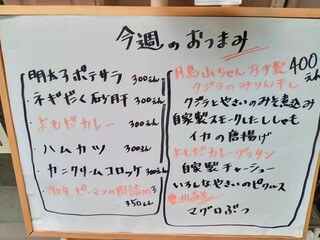 今週のおつまみ
明太子ポテサラ 300えん
・ネギだく砂肝 300えん
・よもだカレー 300えん
・ハムカツ 300えん
・カニクリームコロッケ 300えん
ピーマンの肉詰め
350えん
400えん
クジラのみりん干し
クジラとやさいのみそ煮込み
自家製スモークしたししゃも
イカの唐揚げ
よもだカレーグラタン
自家製チャーシュー
いろんなやさいのピクルス
マグロぶつ